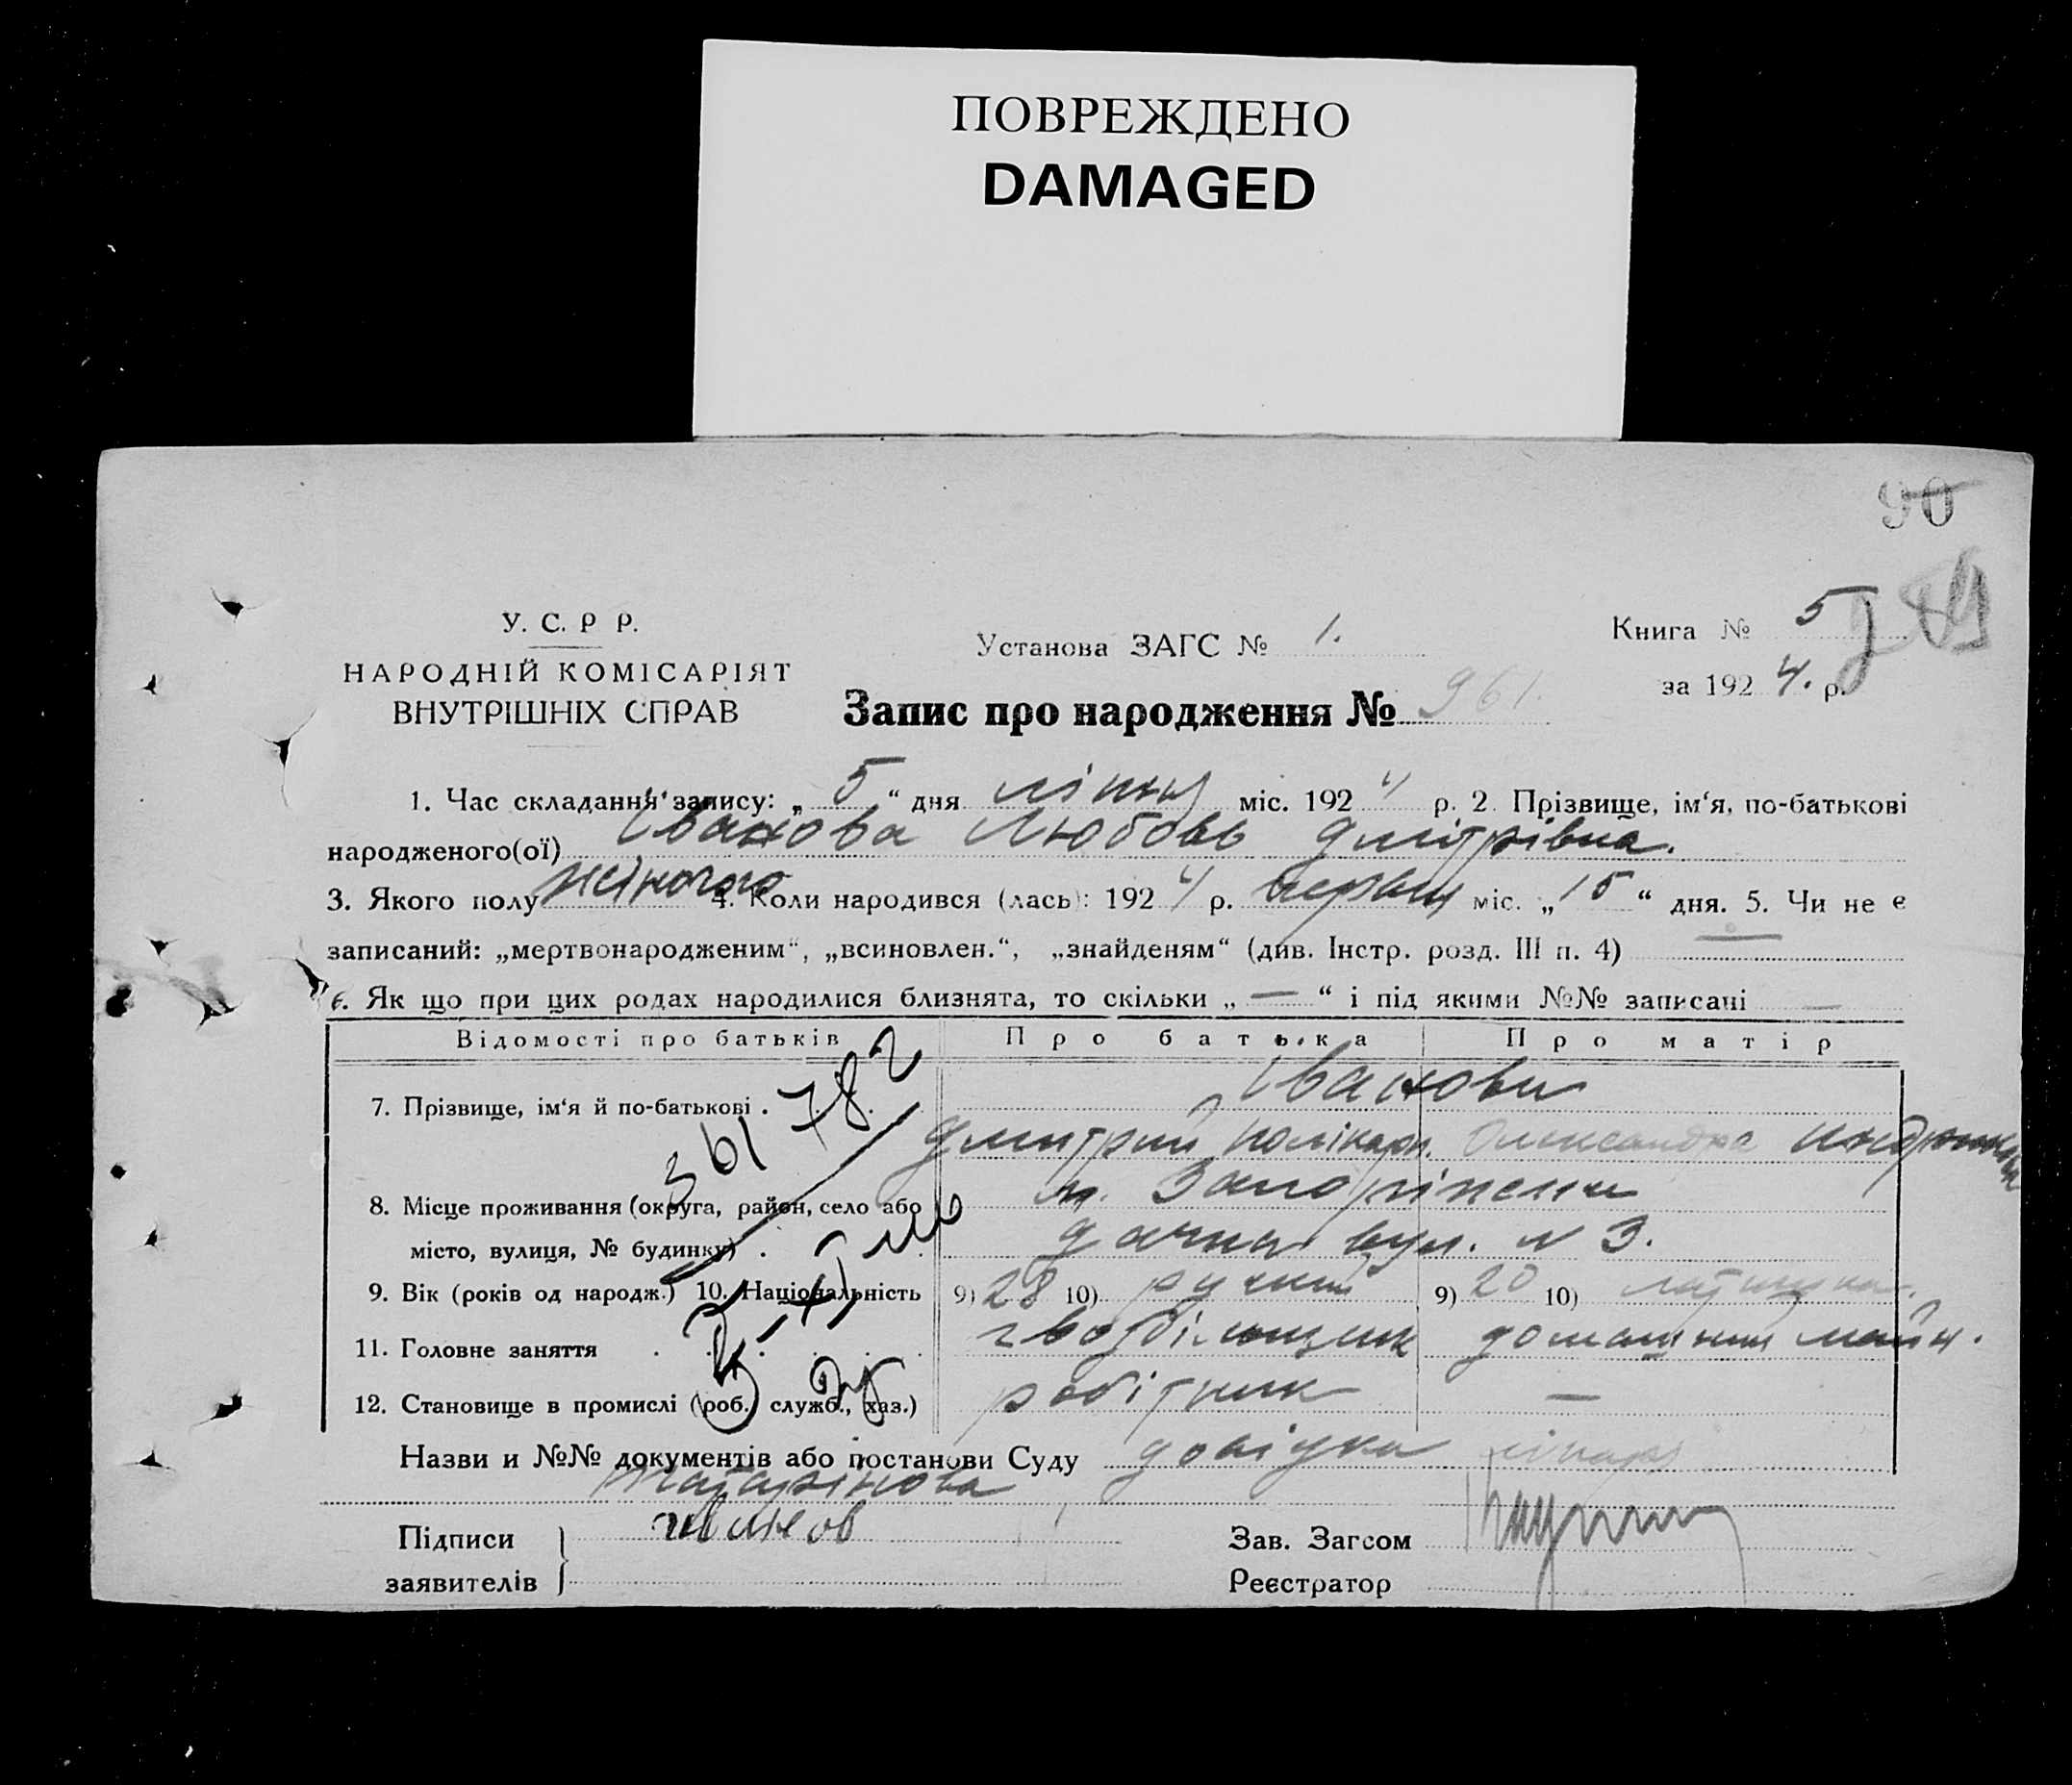 ПОВРЕЖДЕНО
DAMAGED
90
У. С. Р Р.
НАРОДНІЙ КОМІСАРІЯТ
ВНУТРІШНІХ СПРАВ
Установа ЗАГС № 1.
Книга № 5
за 1924. р.
Запис про народження № 961.
1. Час складання запису: „ 5 “ дня липня міс. 1924 р. 2. Прізвище, ім‘я, по-батькові
народженого(ої) Іванова Любовь Дмитрівна.
3. Якого полу жіночого 4. Коли народився (лась): 1924 р. червня міс. „ 15 “ дня. 5. Чи не є
записаний: „мертвонародженим“, „всиновлен.“, „знайденям“ (див. Інстр. розд. III п. 4) —
6. Як що при цих родах народилися близнята, то скільки „ — “ і під якими №№ записані —
Відомості про батьків Про батька Про матір
7. Прізвище, ім‘я й по-батькові . Іванови
361 782
Дмитрий Полікарп. Олександра
8. Місце проживання (округа, район, село або м. Запоріжжя
місто, вулиця, № будинку) . Дачна вул. № 3.
9. Вік (років од народж.) 10. Національність 9) 28 10) руский 9) 20 10)
11. Головне заняття домашня
12. Становище в промислі (роб., служб., хаз.) робітник —
Назви и №№ документів або постанови Суду довідка лікаря
Татарінова
Підписи Иванов Зав. Загсом
заявителів Реєстратор